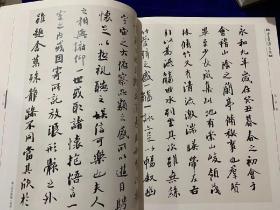 永和九年歲在癸丑暮春之初會于
會稽山陰之蘭亭脩禊事也羣賢
畢至少長咸集此地有崇山峻領茂
林脩竹又有清流激湍映帶左右引
以為流觴曲水列坐其次雖無絲
竹管弦之盛一觴一詠亦足以暢敘幽
宇宙之大俯察品類之盛所以遊目騁
懷足以極視聽之娛信可樂也夫人
之相與俯仰一世或取諸懷抱悟言一
室之內或因寄所託放浪形骸之外
雖趣舍萬殊靜躁不同當其欣於